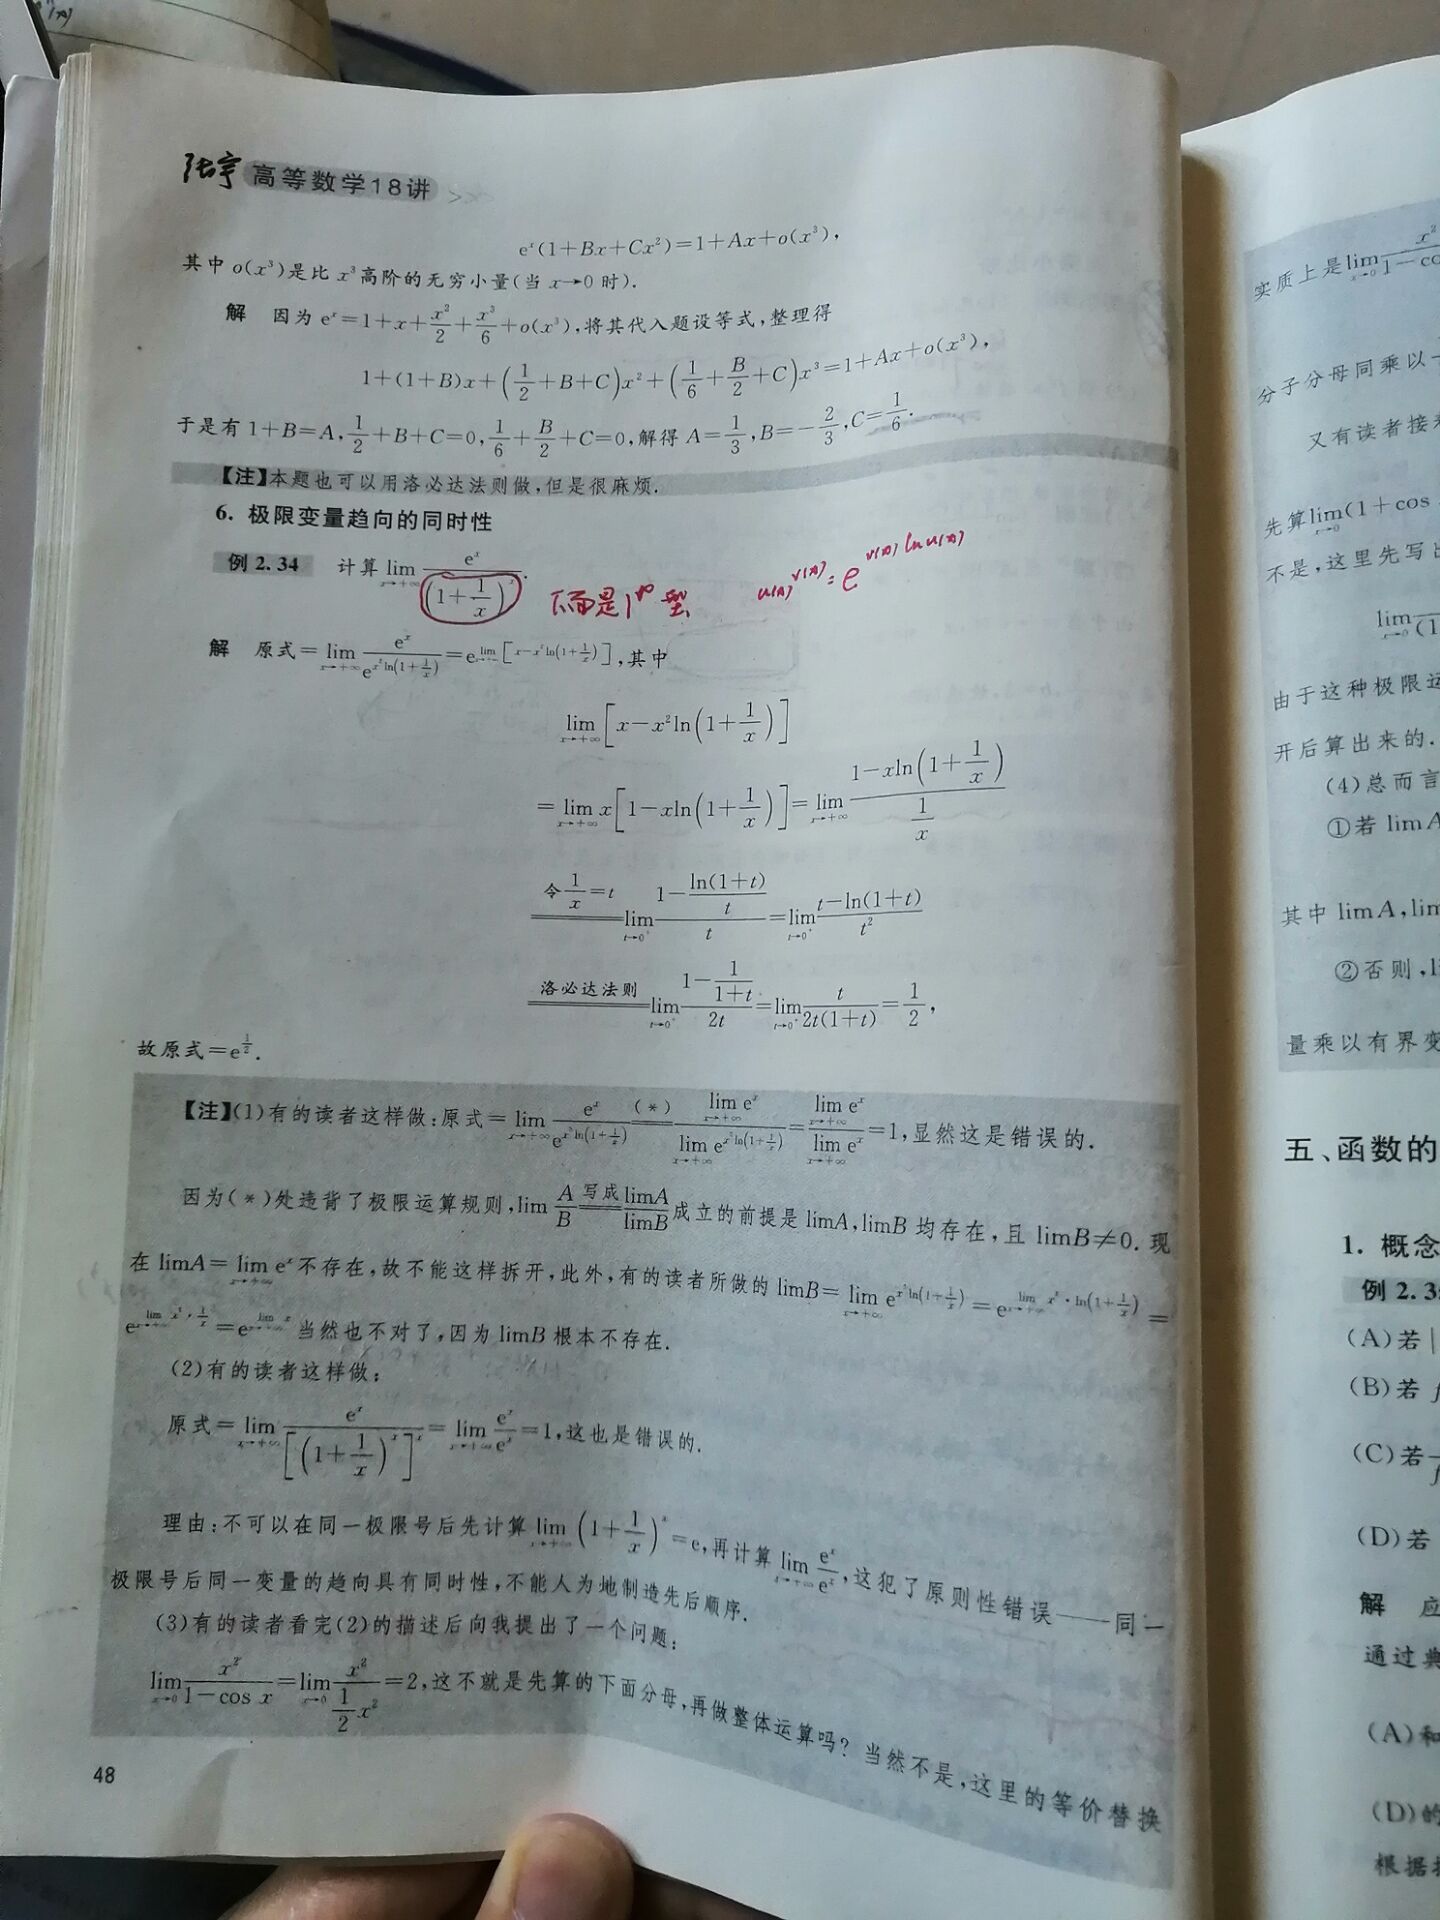 张宇 高等数学18讲
eˣ(1+Bx+Cx²)=1+Ax+o(x³),
其中 o(x³)是比 x³高阶的无穷小量(当 x→0 时).
解 因为 eˣ=1+x+x²/2+x³/6+o(x³),将其代入题设等式,整理得
1+(1+B)x+(1/2+B+C)x²+(1/6+B/2+C)x³=1+Ax+o(x³),
于是有 1+B=A,1/2+B+C=0,1/6+B/2+C=0,解得 A=1/3,B=-2/3,C=1/6.
【注】本题也可以用洛必达法则做,但是很麻烦.
6. 极限变量趋向的同时性
例 2.34 计算 lim_{x→+∞} eˣ/(1+1/x)^{x²}.
下面是1^∞型 u(x)^{v(x)}=e^{v(x) ln u(x)}
解 原式=lim_{x→+∞} eˣ/e^{x²ln(1+1/x)}=e^{lim_{x→+∞}[x-x²ln(1+1/x)]},其中
lim_{x→+∞}[x-x²ln(1+1/x)]
=lim_{x→+∞} x[1-xln(1+1/x)]=lim_{x→+∞} (1-xln(1+1/x))/(1/x)
令1/x=t lim_{t→0⁺} (1-ln(1+t)/t)/t=lim_{t→0⁺} (t-ln(1+t))/t²
洛必达法则 lim_{t→0⁺} (1-1/(1+t))/2t=lim_{t→0⁺} t/2t(1+t)=1/2,
故原式=e^{1/2}.
【注】(1)有的读者这样做:原式=lim_{x→+∞} eˣ/e^{x²ln(1+1/x)} (*)= lim_{x→+∞} eˣ/lim_{x→+∞} e^{x²ln(1+1/x)}=lim_{x→+∞} eˣ/lim_{x→+∞} eˣ=1,显然这是错误的.
因为(*)处违背了极限运算规则,lim A/B 写成= limA/limB 成立的前提是 limA,limB 均存在,且 limB≠0. 现
在 limA=lim_{x→+∞} eˣ不存在,故不能这样拆开,此外,有的读者所做的 limB=lim_{x→+∞} e^{x²ln(1+1/x)}=e^{lim_{x→+∞} x²·ln(1+1/x)}=
e^{lim_{x→+∞} x²·1/x}=e^{lim_{x→+∞} x} 当然也不对了,因为 limB 根本不存在.
(2)有的读者这样做:
原式=lim_{x→+∞} eˣ/[(1+1/x)ˣ]ˣ=lim_{x→+∞} eˣ/eˣ=1,这也是错误的.
理由:不可以在同一极限号后先计算 lim_{x→+∞}(1+1/x)ˣ=e,再计算 lim_{x→+∞} eˣ/eˣ,这犯了原则性错误——同一
极限号后同一变量的趋向具有同时性,不能人为地制造先后顺序.
(3)有的读者看完(2)的描述后向我提出了一个问题:
lim_{x→0} x²/(1-cos x)=lim_{x→0} x²/(1/2 x²)=2,这不就是先算的下面分母,再做整体运算吗? 当然不是,这里的等价替换
48
实质上是lim_{x→0} x²/1-co
分子分母同乘以
又有读者接
先算lim_{x→0}(1+cos
不是,这里先写出
lim_{x→0} (1
由于这种极限运
开后算出来的.
(4)总而言
①若 limA
其中 limA,lim
②否则,
量乘以有界变
五、函数的
1. 概念
例 2.3
(A)若 |
(B)若 f
(C)若
(D)若
解 应
通过典
(A)和
(D)的
根据